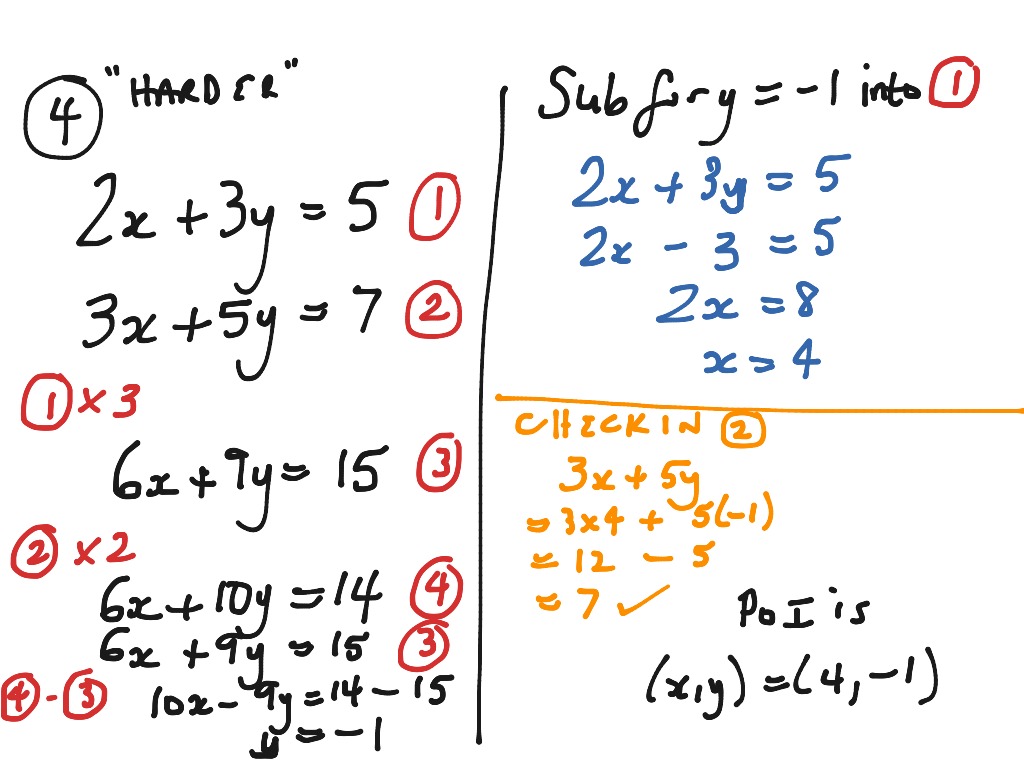 ④ "HARDER"
2x + 3y = 5 ①
3x + 5y = 7 ②
① x 3
6x + 9y = 15 ③
② x 2
6x + 10y = 14 ④
6x + 9y = 15 ③
④ - ③ 10x - 9y = 14 - 15
y = -1
Sub for y = -1 into ①
2x + 3y = 5
2x - 3 = 5
2x = 8
x = 4
CHECK IN ②
3x + 5y
= 3x4 + 5(-1)
= 12 - 5
= 7 ✓
PoI is
(x,y) = (4, -1)